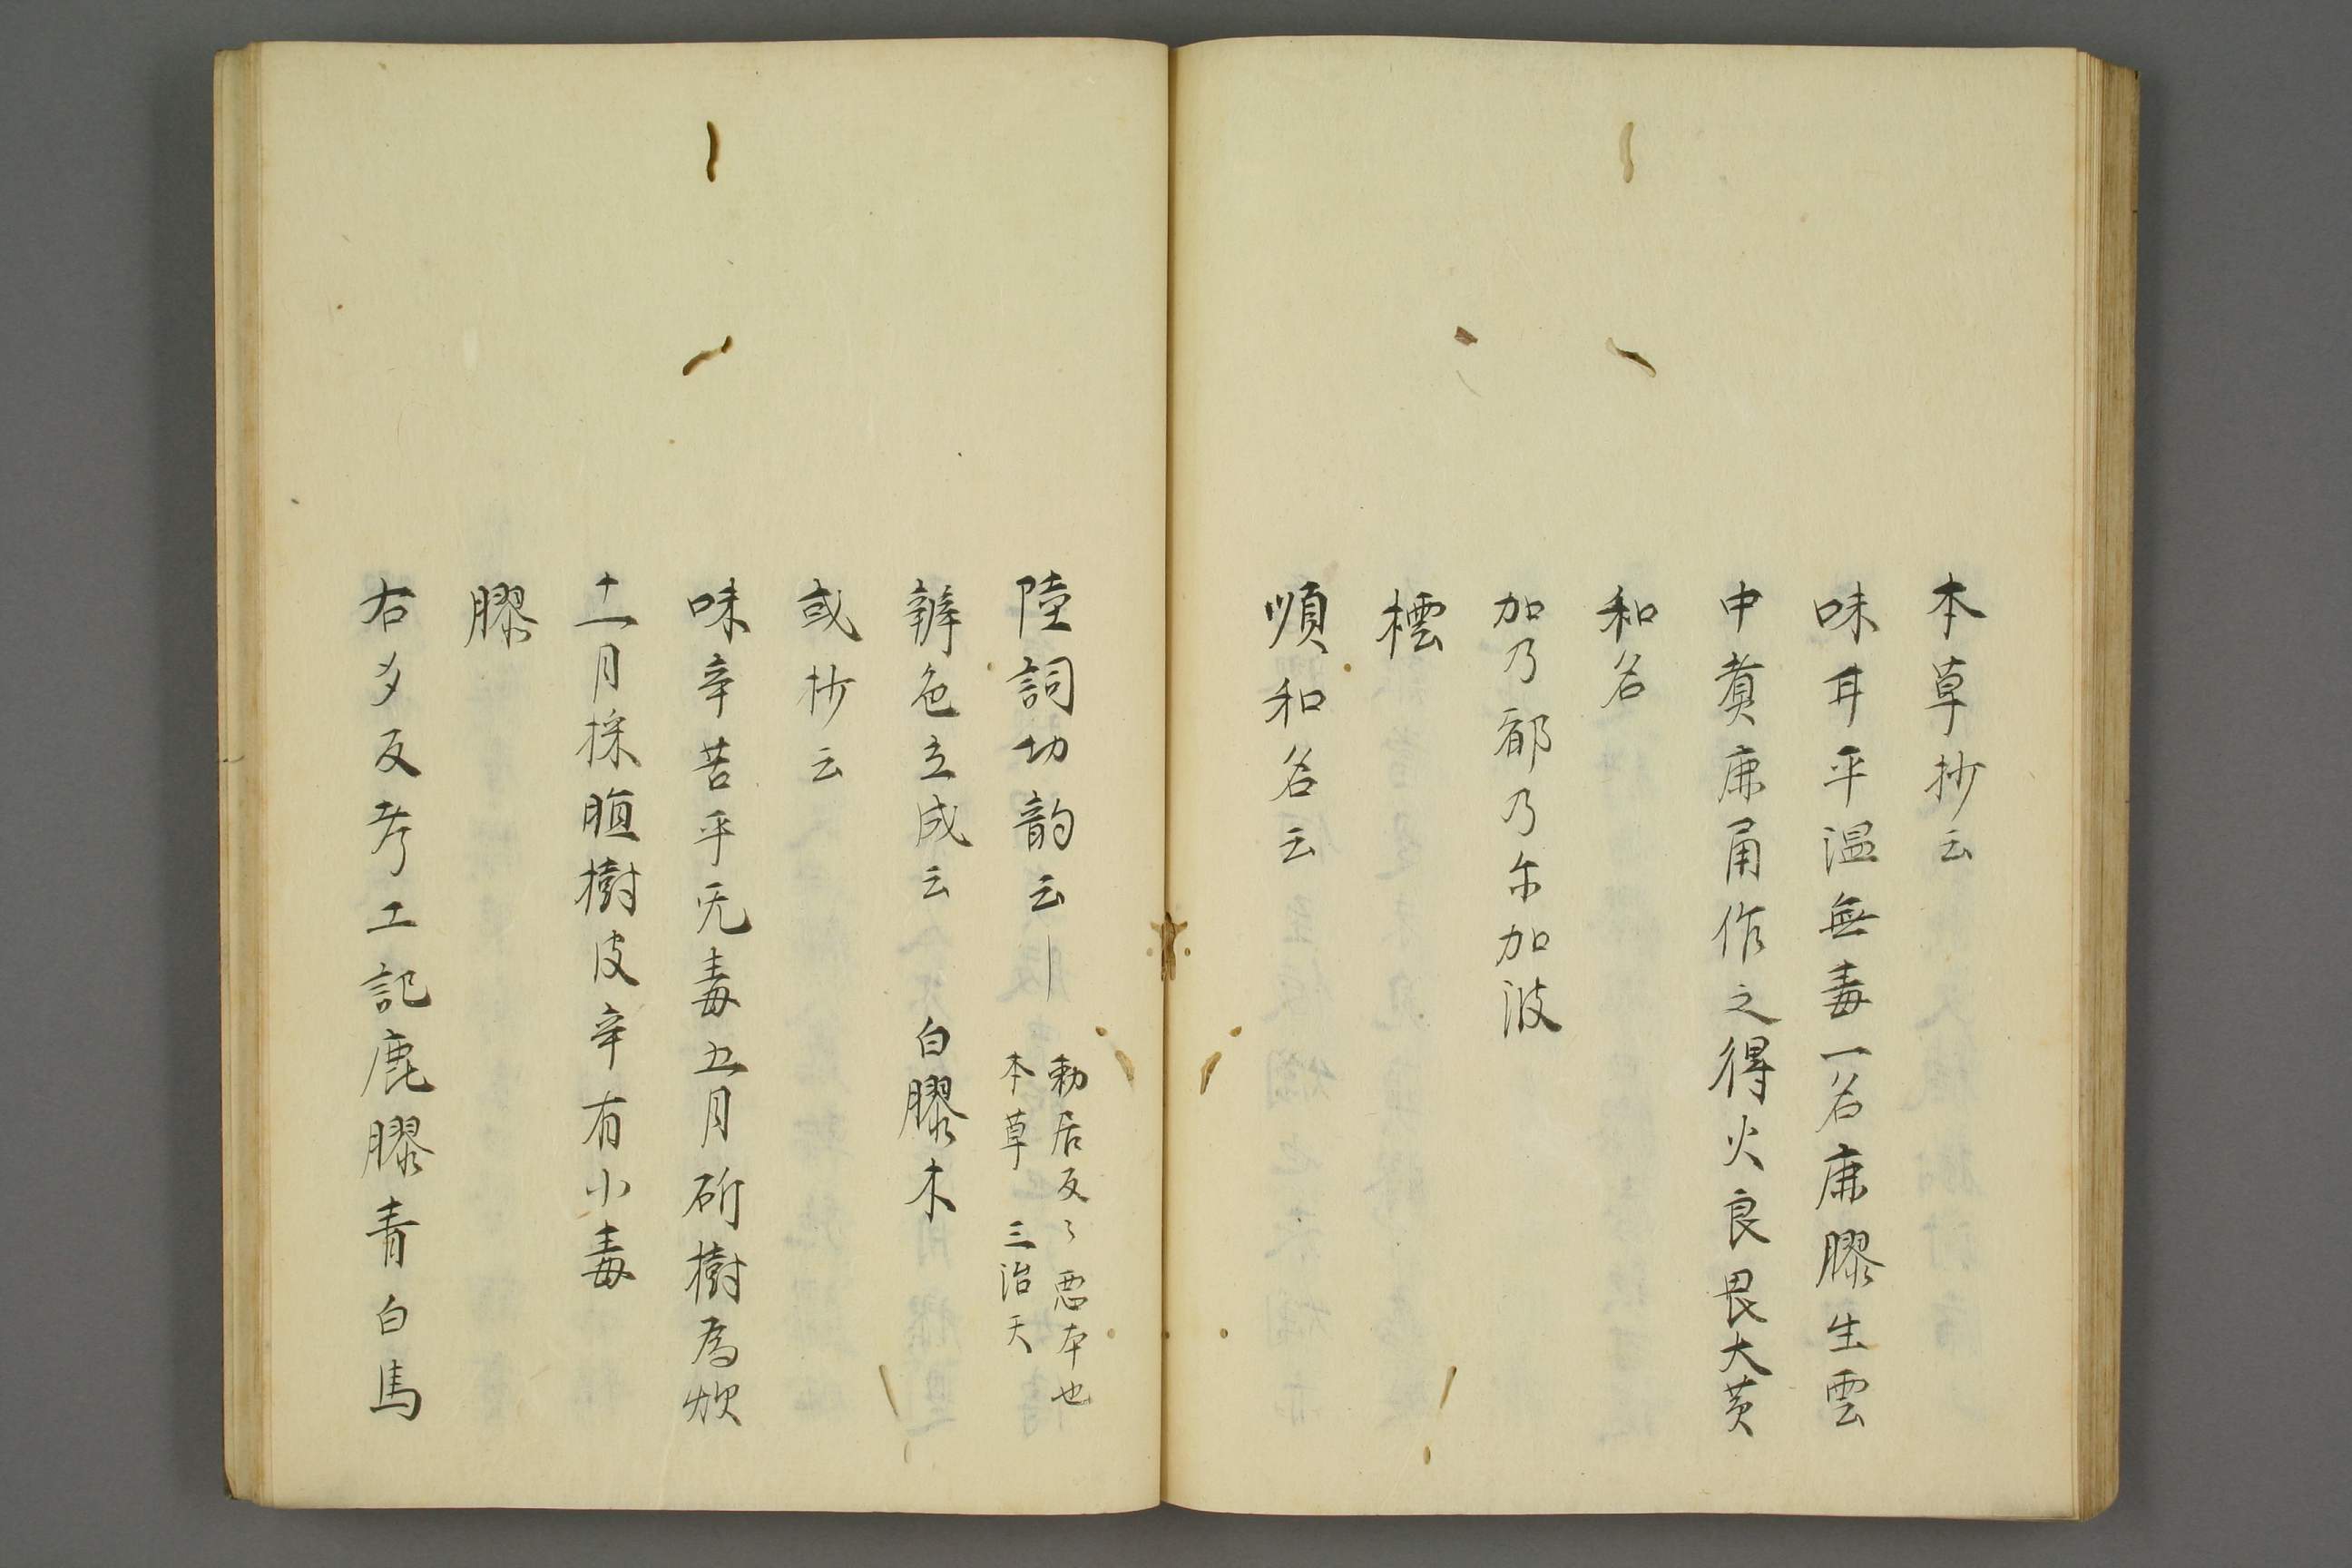 本草抄云
味甘平温無毒一名鹿膠生雲
中煑鹿角作之得火良畏大黄
和名
加乃都乃尓加波
橒
順和名云
陸詞切韵云｜ 勅居反〻悪木也
本草 三治天
辨色立成云 白膠木
或抄云
味辛苦平无毒五月斫樹為炊
十一月採腫樹皮辛有小毒
膠
右夕反考工記鹿膠青白馬